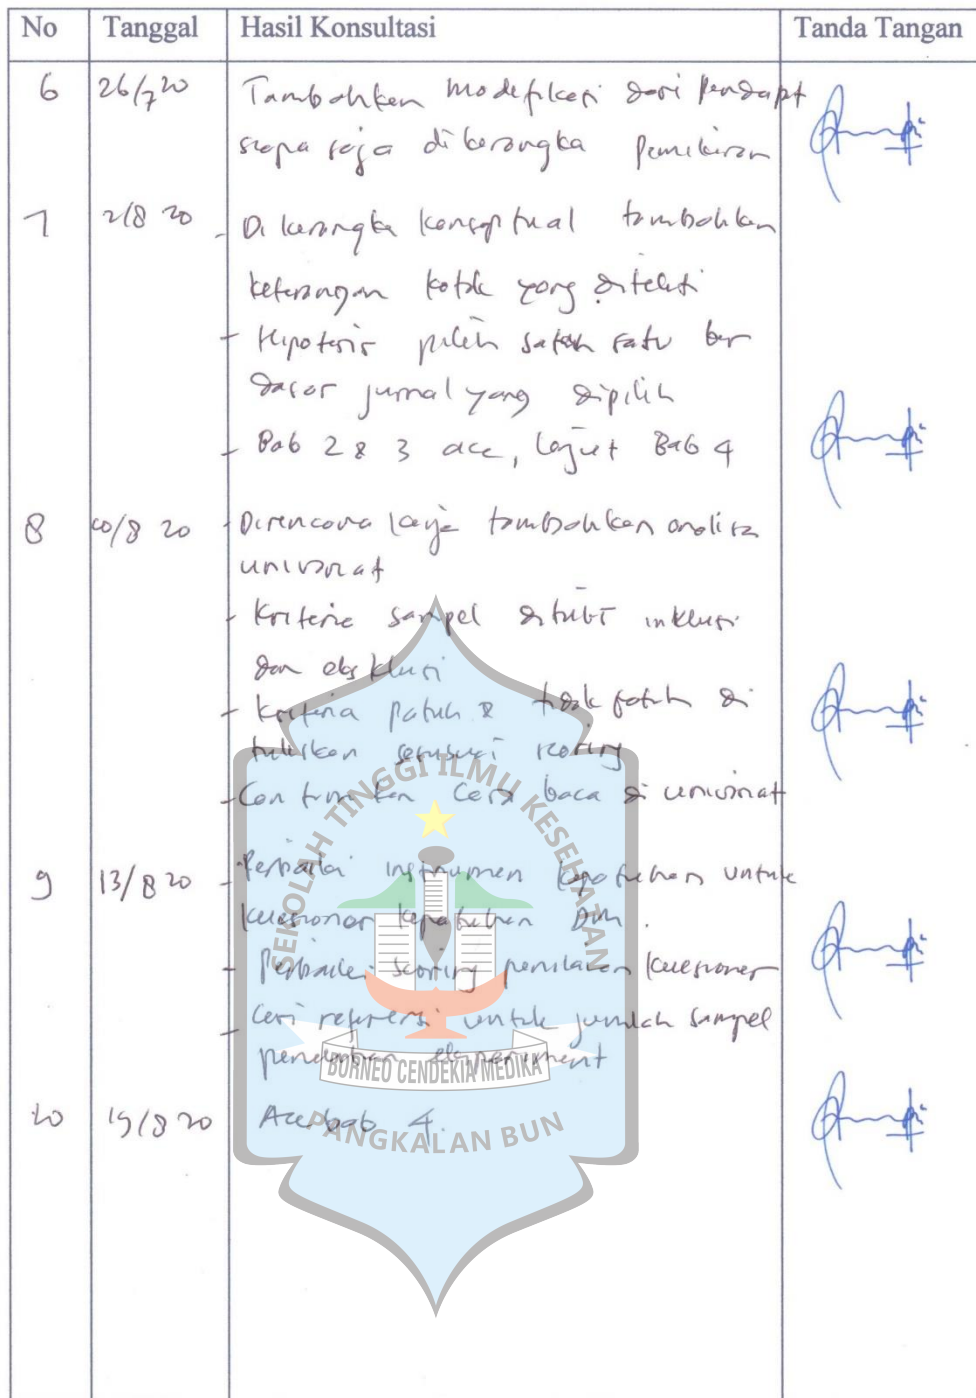 No Tanggal Hasil Konsultasi Tanda Tangan
6 26/7 20 Tambahkan modifikasi dari pendapt
siapa saja di kerangka pemikiran
7 2/8 20 - Di kerangka konseptual tambahkan
keterangan kotak yang diteliti
- Hipotesis pilih salah satu ber
dasar jurnal yang dipilih
- Bab 2 & 3 acc, lanjut Bab 4
8 10/8 20 - Di rencana kerja tambahkan analisa
univariat
- Kriteria sampel ditulis inklusi
dan eksklusi
- Kriteria patuh & tidak patuh di
tuliskan sesuai scoring
- Cantumkan cara baca di univariat
9 13/8 20 - Perbaiki instrumen kepatuhan untuk
kuesioner kepatuhan
- Perbaiki scoring penilaian kuesioner
- Cari referensi untuk jumlah sampel
penelitian eksperiment
10 19/8 20 Acc bab 4.
SEKOLAH TINGGI ILMU KESEHATAN
BORNEO CENDEKIA MEDIKA
PANGKALAN BUN